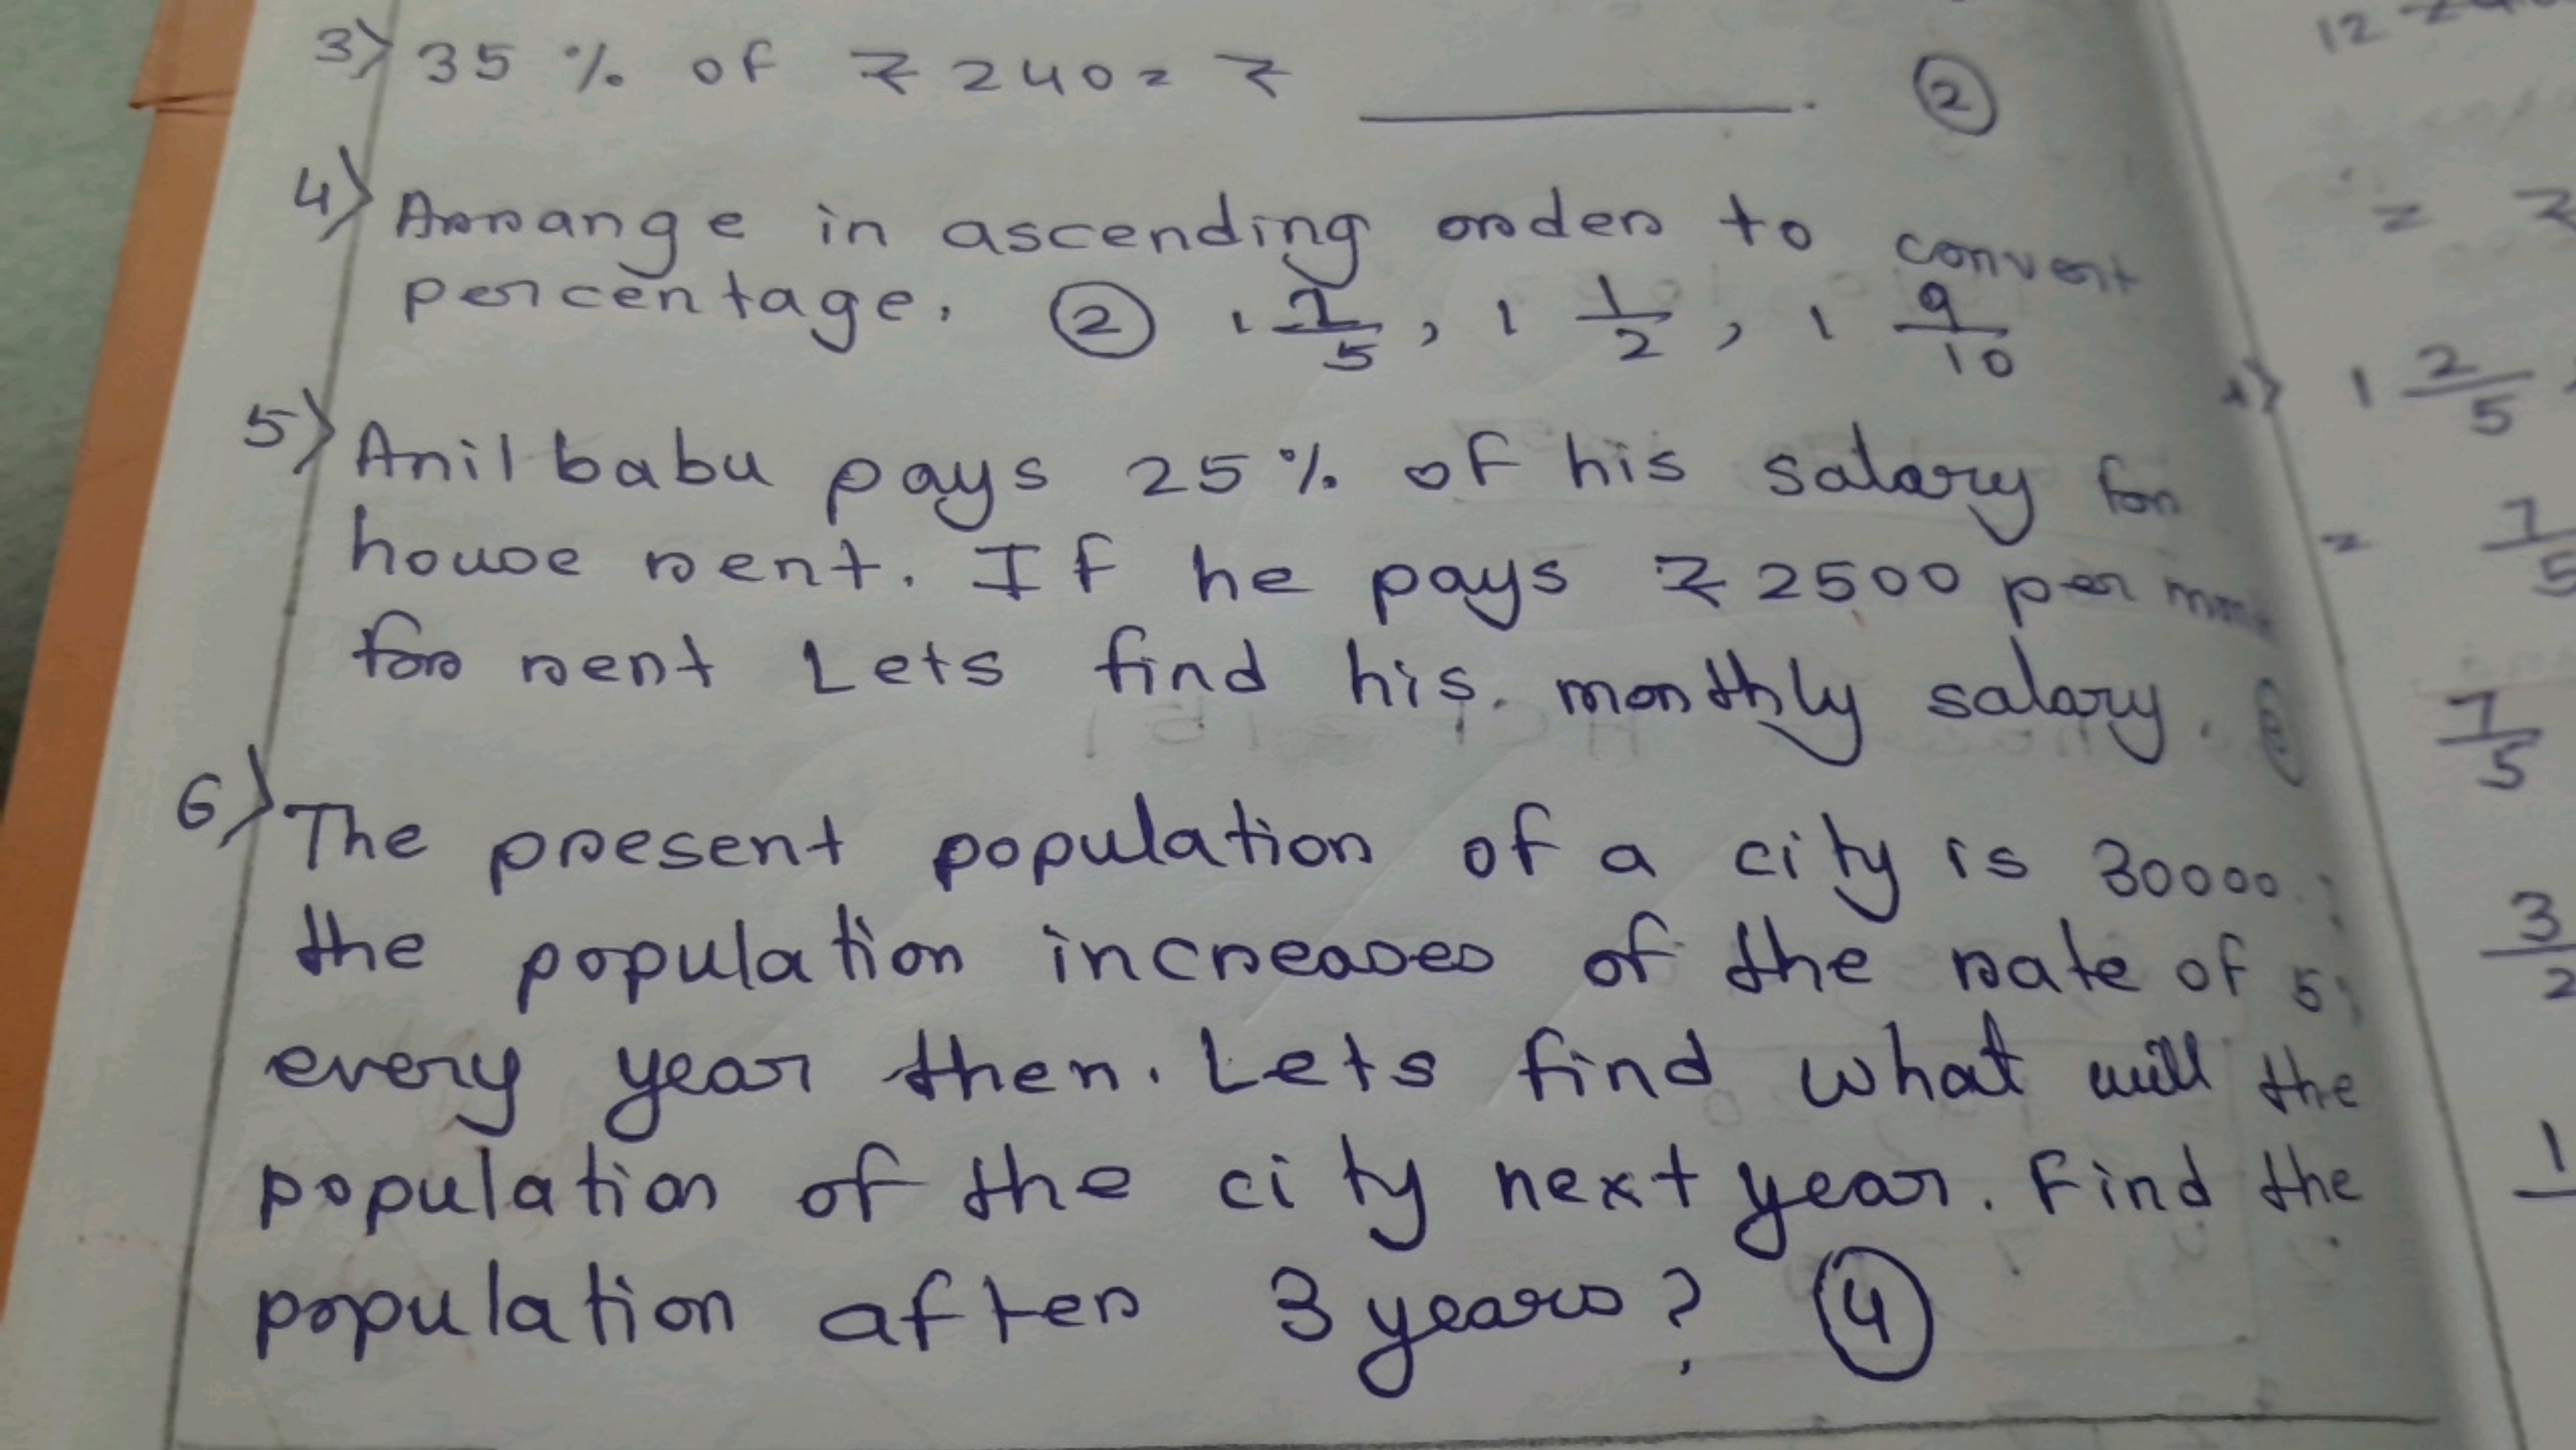 3) 35 % of ₹ 240 = ₹ ________. ②
4) Arrange in ascending order to convert
percentage. ② 1 2/5, 1 1/2, 1 9/10
5) Anil babu pays 25 % of his salary for
house rent. If he pays ₹ 2500 per
for rent Lets find his. monthly salary.
6) The present population of a city is 30000.
the population increases of the rate of 5
every year then. Lets find what will the
population of the city next year. Find the
population after 3 years? ④
12
= ₹
1 2/5
= 7/5
7/5
3/2
1